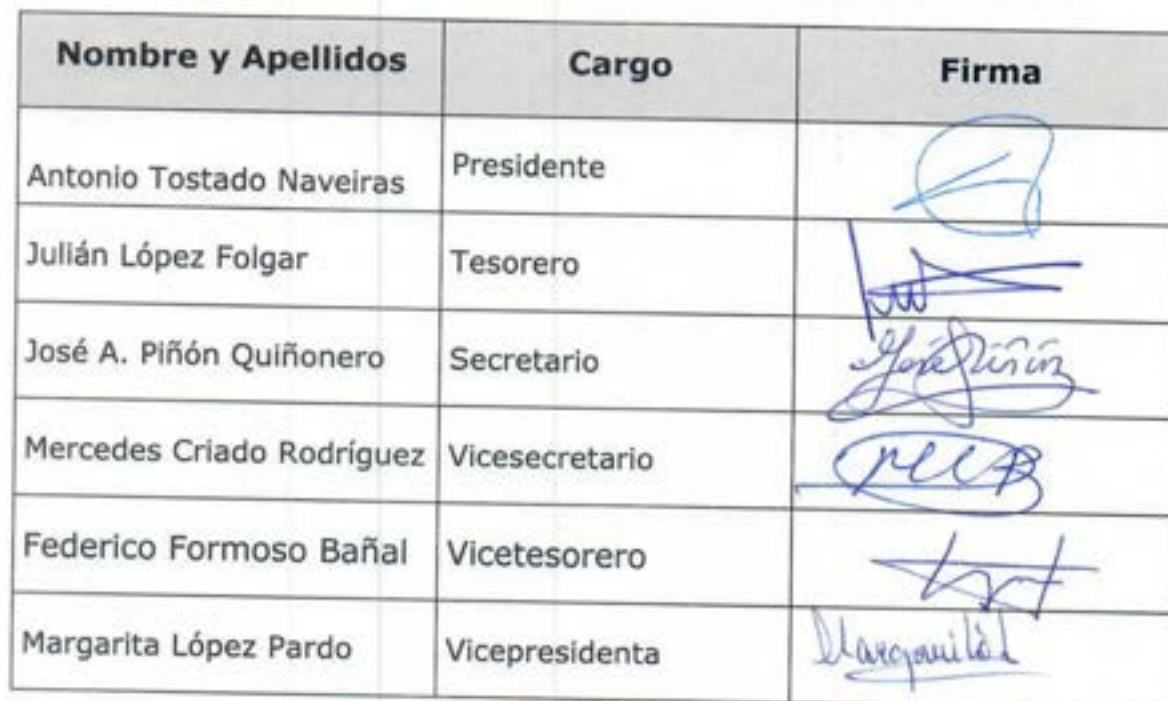 Nombre y Apellidos Cargo Firma
Antonio Tostado Naveiras Presidente
Julián López Folgar Tesorero
José A. Piñón Quiñonero Secretario José Piñón
Mercedes Criado Rodríguez Vicesecretario
Federico Formoso Bañal Vicetesorero
Margarita López Pardo Vicepresidenta